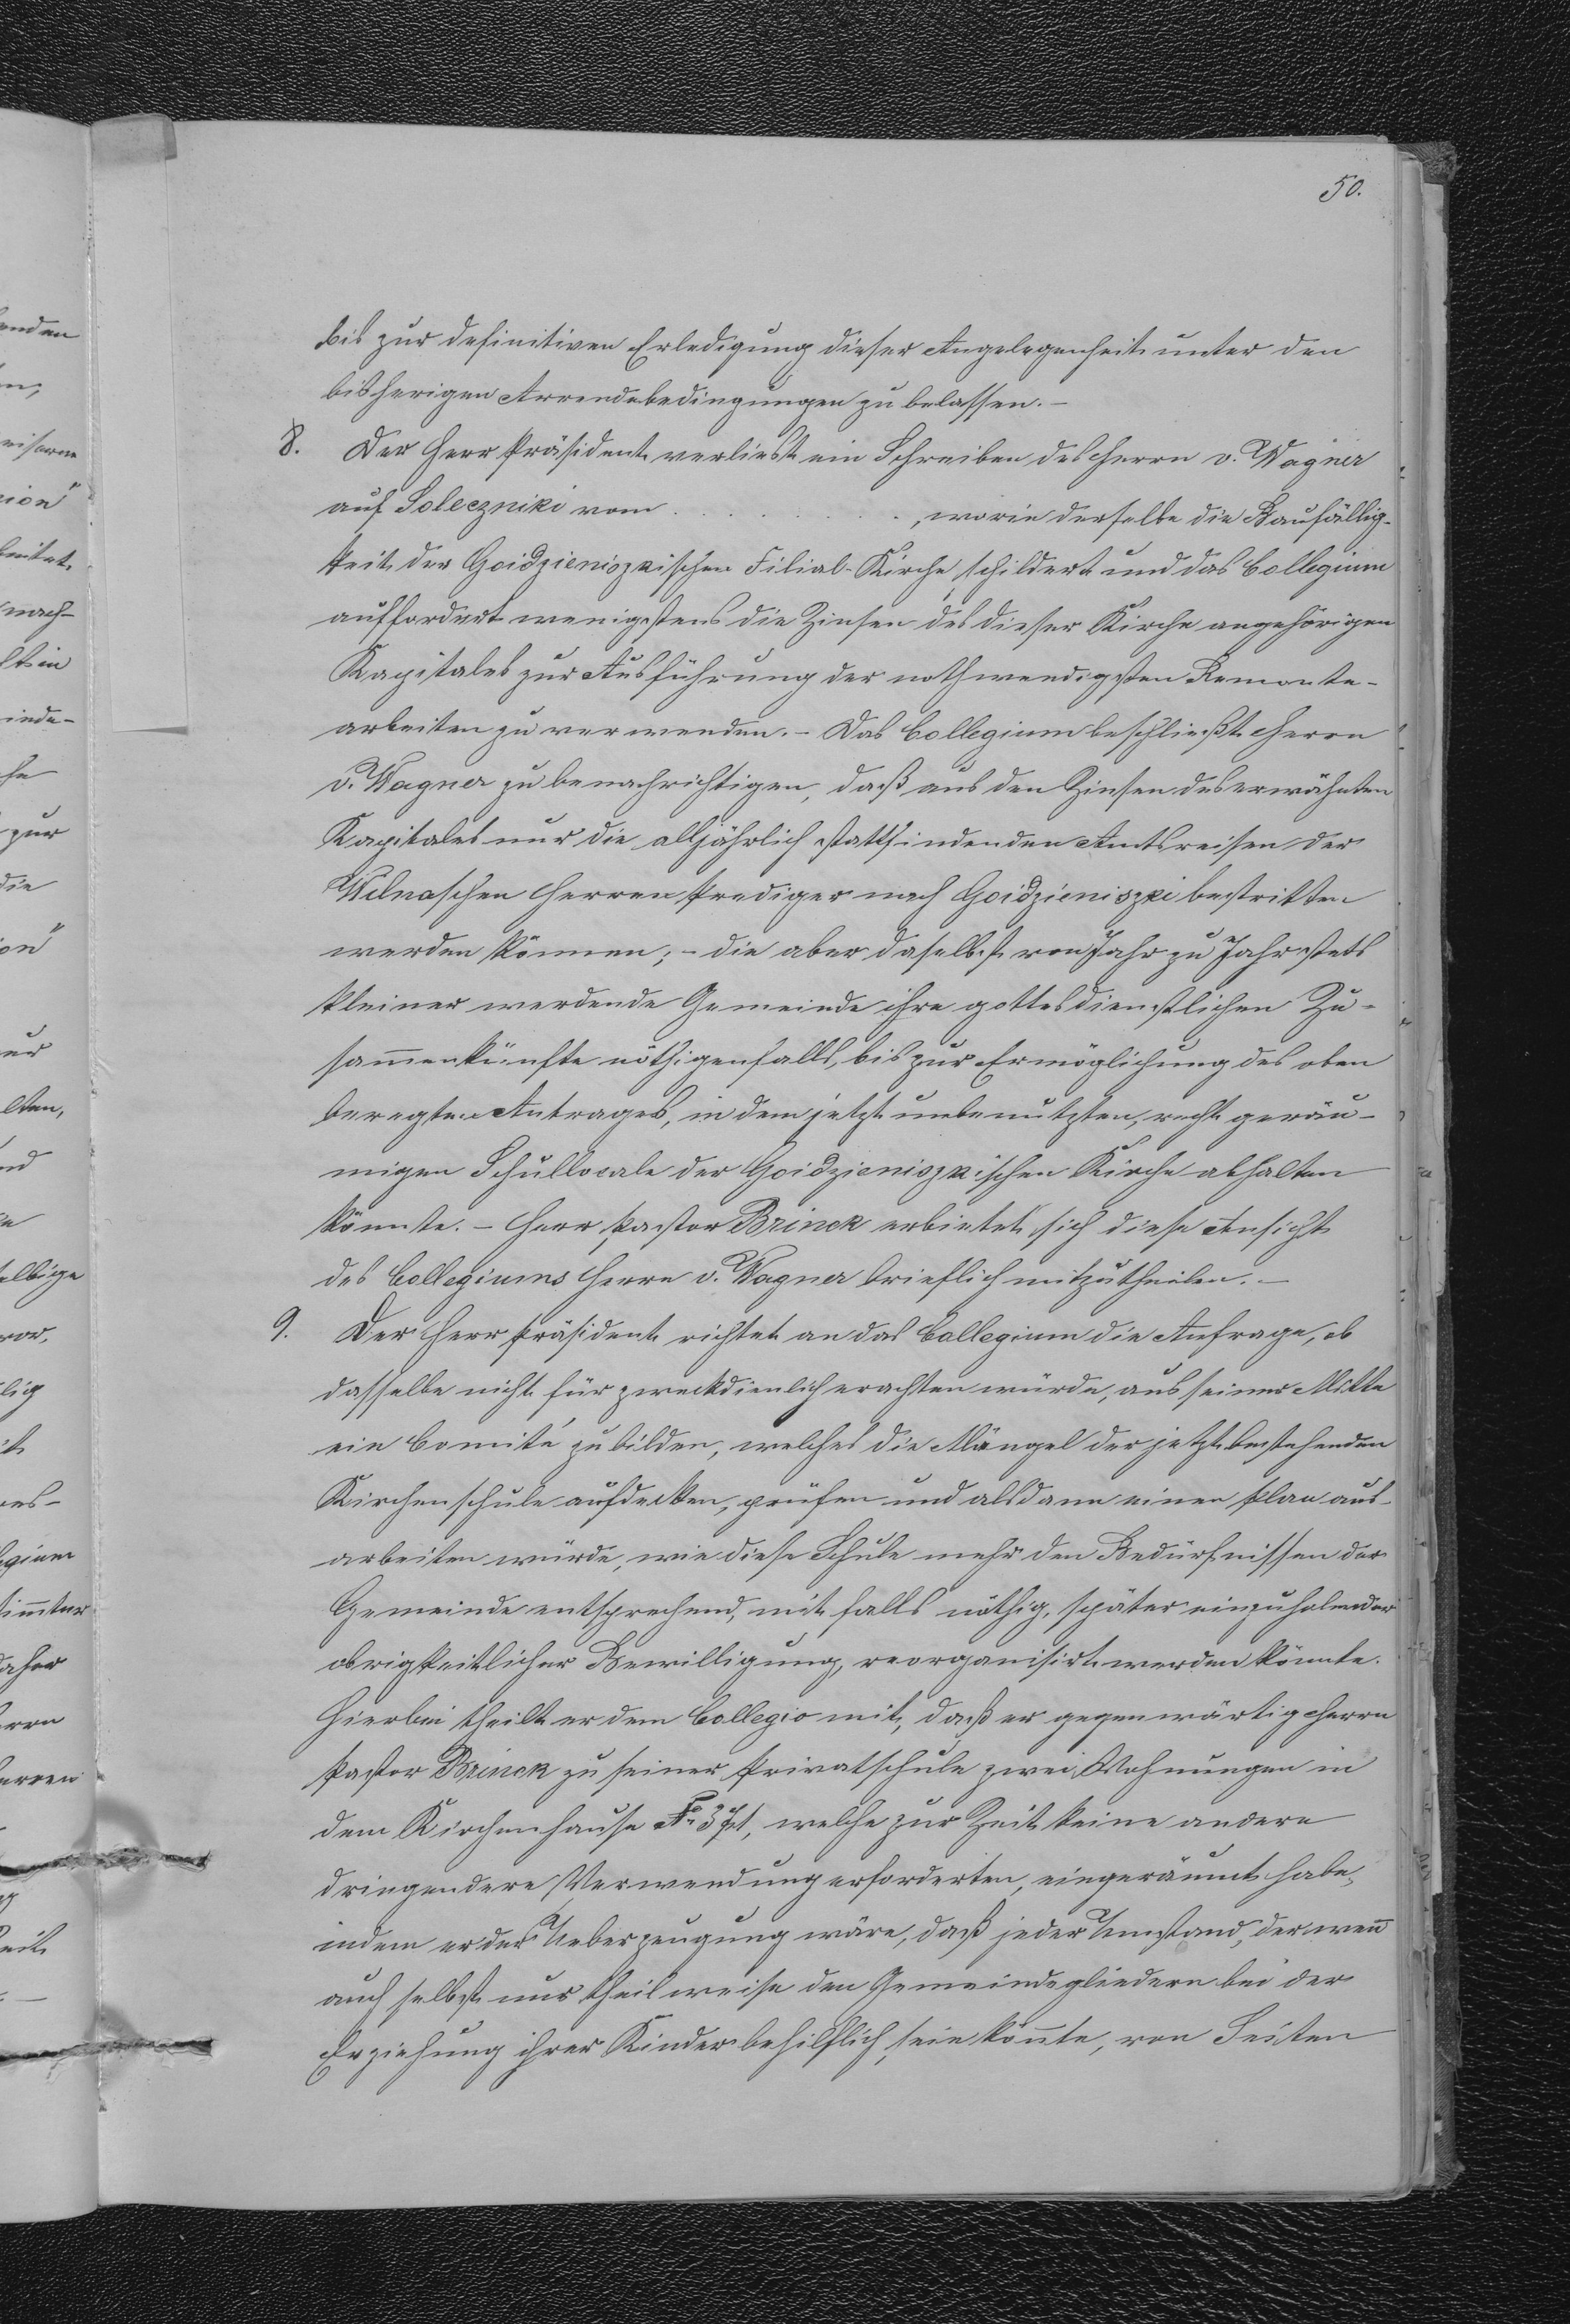 50.
bis zur definitiven Erledigung dieser Angelegenheit unter den
bisherigen Arrendebedingungen zu belassen. –
8. Der Herr Präsident verliest ein Schreiben des Herrn v. Wagner
auf Soleczniki vom . . . . . . . . , worin derselbe die Baufällig-
keit der Goidzieniszkischen Filial-Kirche schildert und das Collegium
auffordert wenigstens die Zinsen des dieser Kirche angehörigen
Kapitales zur Ausführung der nothwendigsten Remonte-
arbeiten zu verwenden. – Das Collegium beschließt Herrn
v. Wagner zu benachrichtigen, daß aus den Zinsen des erwähnten
Kapitales nur die alljährlich stattfindenden Amtsreisen der
Wilnaschen Herren Prediger nach Goidzieniszki bestritten
werden können; – die aber daselbst von Jahr zu Jahr stets
kleiner werdende Gemeinde ihre gottesdienstlichen Zu-
sam̅enkünfte nöthigenfalls, bis zur Ermöglichung des oben
beregten Antrages, in dem jetzt unbenutzten, recht geräu-
migen Schullocale der Goidzieniszkischen Kirche abhalten
könnte. – Herr Pastor Brinck erbietet sich diese Ansicht
des Collegiums Herrn v. Wagner brieflich mitzutheilen. –
9. Der Herr Präsident richtet an das Collegium die Anfrage, ob
dasselbe nicht für zweckdienlich erachten würde, aus seiner Mitte
ein Comité zu bilden, welches die Mängel der jetzt bestehenden
Kirchenschule aufdecken, prüfen und alsdann einen Plan aus-
arbeiten würde, wie diese Schule mehr den Bedürfnissen der
Gemeinde entsprechend, mit falls nöthig, später einzuholender
obrigkeitlicher Bewilligung, reorganisirt werden könnte.
Hierbei theilt er dem Collegio mit, daß er gegenwärtig Herrn
Pastor Brinck zu seiner Privatschule zwei Wohnungen in
dem Kirchenhause № 371, welche zur Zeit keine andere
dringendere Verwendung erforderten, eingeräumt habe,
indem er der Ueberzeugung wäre, daß jeder Umstand, der wen̅
auch selbst nur theilweise den Gemeindegliedern bei der
Erziehung ihrer Kinder behilflich sein kön̅te, von Seiten